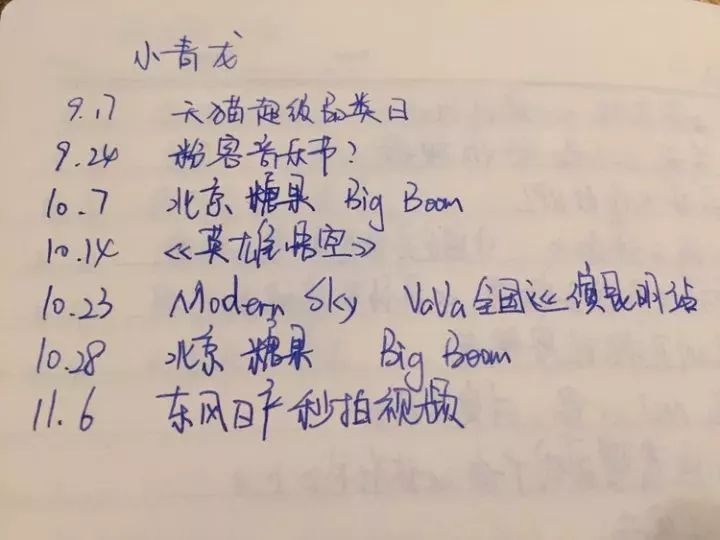 小青龙
9.17 天猫超级品类日
9.24 粉客音乐节?
10.7 北京糖果 Big Boom
10.14 《英雄悟空》
10.23 Modern Sky VaVa全国巡演昆明站
10.28 北京糖果 Big Boom
11.6 东风日产秒拍视频